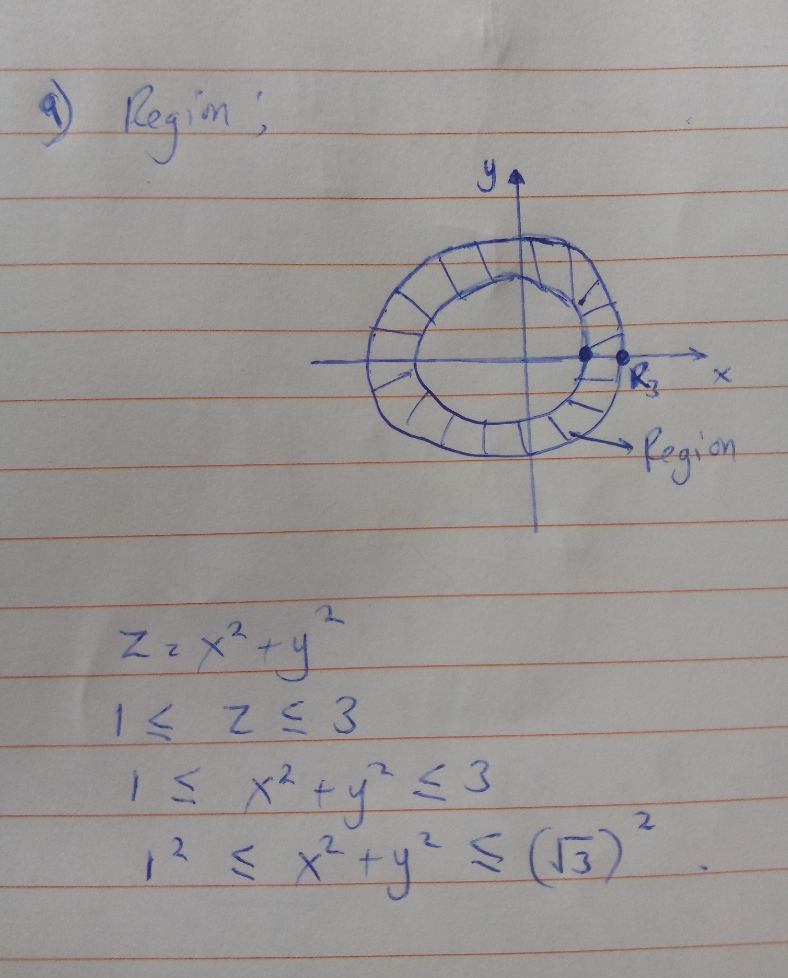 a) Region;
y
R3 x
Region
z = x² + y²
1 ≤ z ≤ 3
1 ≤ x² + y² ≤ 3
1² ≤ x² + y² ≤ (√3)².